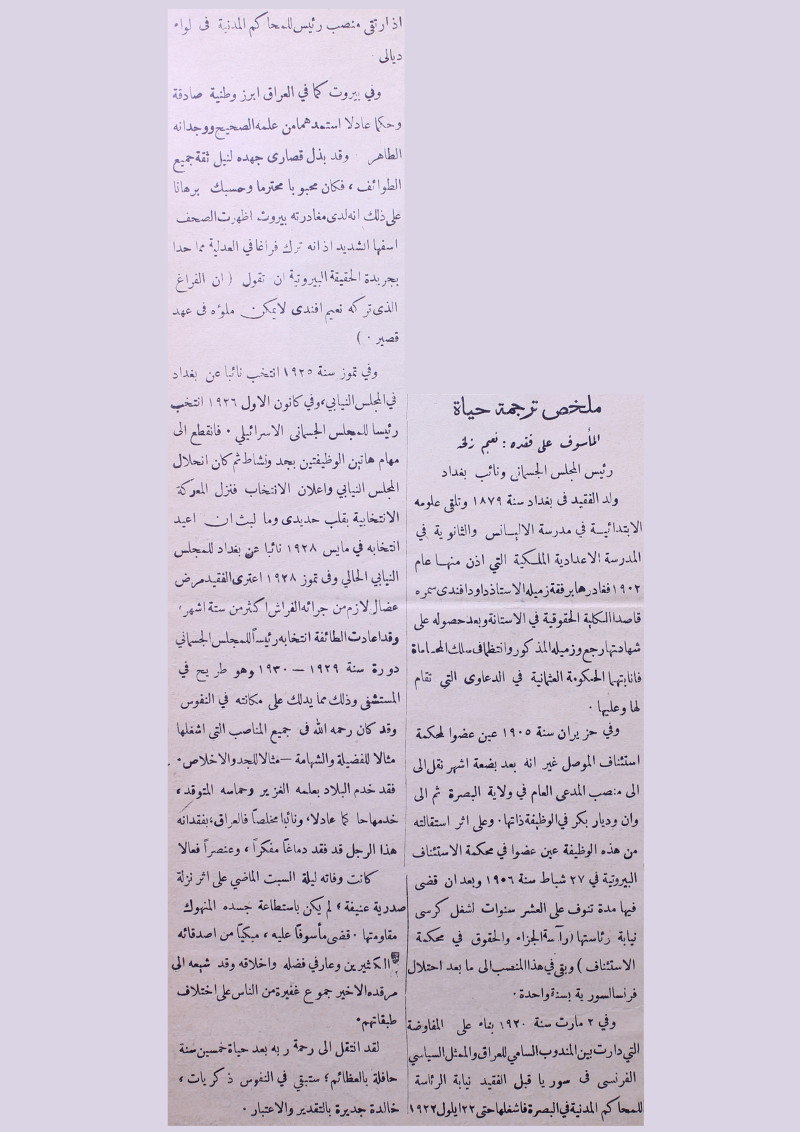 ملخص ترجمة حياة
المأسوف على فقده : نعيم زلخه
رئيس المجلس الجسمانى ونائب بغداد
ولد الفقيد فى بغداد سنة ١٨٧٩ وتلقى علومه
الابتدائية في مدرسة الاليانس والثانوية في
المدرسة الاعدادية الملكية التي اذن منها عام
١٩٠٢ فغادرها برفقة زميله الاستاذ داود افندى سمره
قاصدا الكلية الحقوقية في الاستانة وبعد حصوله على
شهادتها رجع وزميله المذكور وانتظما فى سلك المحاماة
فانابتهما الحكومة العثمانية في الدعاوى التي تقام
لها وعليها .
وفي حزيران سنة ١٩٠٥ عين عضوا لمحكمة
استئناف الموصل غير انه بعد بضعة اشهر نقل الى
الى منصب المدعى العام في ولاية البصرة ثم الى
وان وديار بكر في الوظيفة ذاتها . وعلى اثر استقالته
من هذه الوظيفة عين عضوا في محكمة الاستئناف
البيروتية في ٢٧ شباط سنة ١٩٥٦ وبعد ان قضى
فيها مدة تنوف على العشر سنوات اشغل كرسى
نيابة رئاستها (رآسة الجزاء والحقوق في محكمة
الاستئناف) وبقي في هذا المنصب الى ما بعد احتلال
فرنسا لسورية بسنة واحدة .
وفي ٢ مارت سنة ١٩٢٠ بناء على المفاوضة
التي دارت بين المندوب السامي للعراق والممثل السياسي
الفرنسى فى سوريا قبل الفقيد نيابة الرئاسة
للمحاكم المدنية في البصرة فاشغلها حتى ٢٢ ايلول ١٩٢٢
اذ ارتقى منصب رئيس للمحاكم المدنية فى لواء
ديالى .
وفي بيروت كما في العراق ابرز وطنية صادقة
وحكما عادلا استمدهما من علمه الصحيح ووجدانه
الطاهر وقد بذل قصارى جهده لنيل ثقة جميع
الطوائف ، فكان محبوبا محترما وحسبك برهانا
على ذلك انه لدى مغادرته بيروت اظهرت الصحف
اسفها الشديد اذ انه ترك فراغا في العدلية مما حدا
بجريدة الحقيقة البيروتية ان تقول ( ان الفراغ
الذى تركه نعيم افندى لا يمكن ملؤه فى عهد
قصير . )
وفي تموز سنة ١٩٢٥ انتخب نائبا عن بغداد
في المجلس النيابي ، وفي كانون الاول ١٩٢٦ انتخب
رئيسا للمجلس الجسمانى الاسرائيلي . فانقطع الى
مهام هاتين الوظيفتين بجد ونشاط ثم كان انحلال
المجلس النيابي واعلان الانتخاب فنزل المعركة
الانتخابية بقلب حديدى وما لبث ان اعيد
انتخابه في مايس ١٩٢٨ نائبا عن بغداد للمجلس
النيابي الحالي وفى تموز ١٩٢٨ اعترى الفقيد مرض
عضال لازم من جرائه الفراش اكثر من ستة اشهر .
وقد اعادت الطائفة انتخابه رئيساً للمجلس الجسماني
دورة سنة ١٩٢٩ — ١٩٣٠ وهو طريح في
المستشفى وذلك مما يدلك على مكانته في النفوس
وقد كان رحمه الله فى جميع المناصب التى اشغلها
مثالا للفضيلة والشهامة — مثالا للجد والاخلاص .
فقد خدم البلاد بعلمه الغزير وحماسه المتوقد ،
خدمها حاكما عادلا ، ونائبا مخلصاً فالعراق ، بفقدانه
هذا الرجل قد فقد دماغاً مفكراً ، وعنصراً فعالا
كانت وفاته ليلة السبت الماضي على اثر نزلة
صدرية عنيفة ، لم يكن باستطاعة جسده المنهوك
مقاومتها . قضى مأسوفاً عليه ، مبكياً من اصدقائه
الكثيرين وعارفي فضله واخلاقه وقد شيعه الى
مرقده الاخير جموع غفيرة من الناس على اختلاف
طبقاتهم .
لقد انتقل الى رحمة ربه بعد حياة خمسين سنة
حافلة بالعظائم ؛ ستبقي في النفوس ذكريات ،
خالدة جديرة بالتقدير والاعتبار .